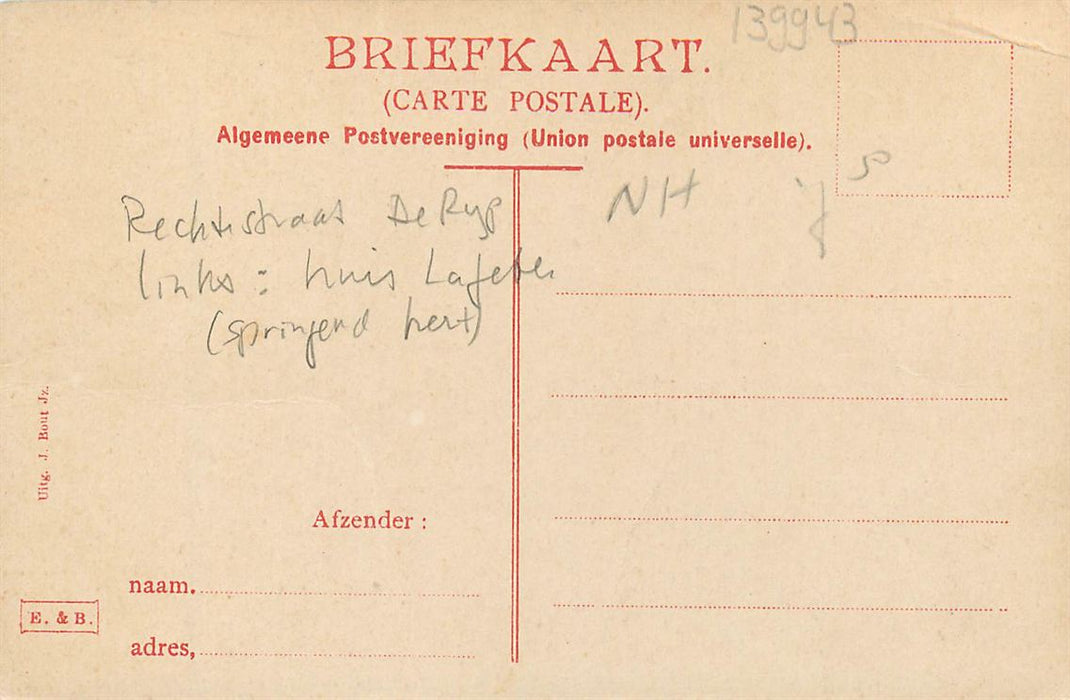 139943
BRIEFKAART.
(CARTE POSTALE).
Algemeene Postvereeniging (Union postale universelle).
NH
Rechtestraat De Ryp
links: huis Lafeber
(springend hert)
Uitg. J. Bout Jz.
Afzender :
naam.
E. & B.
adres,